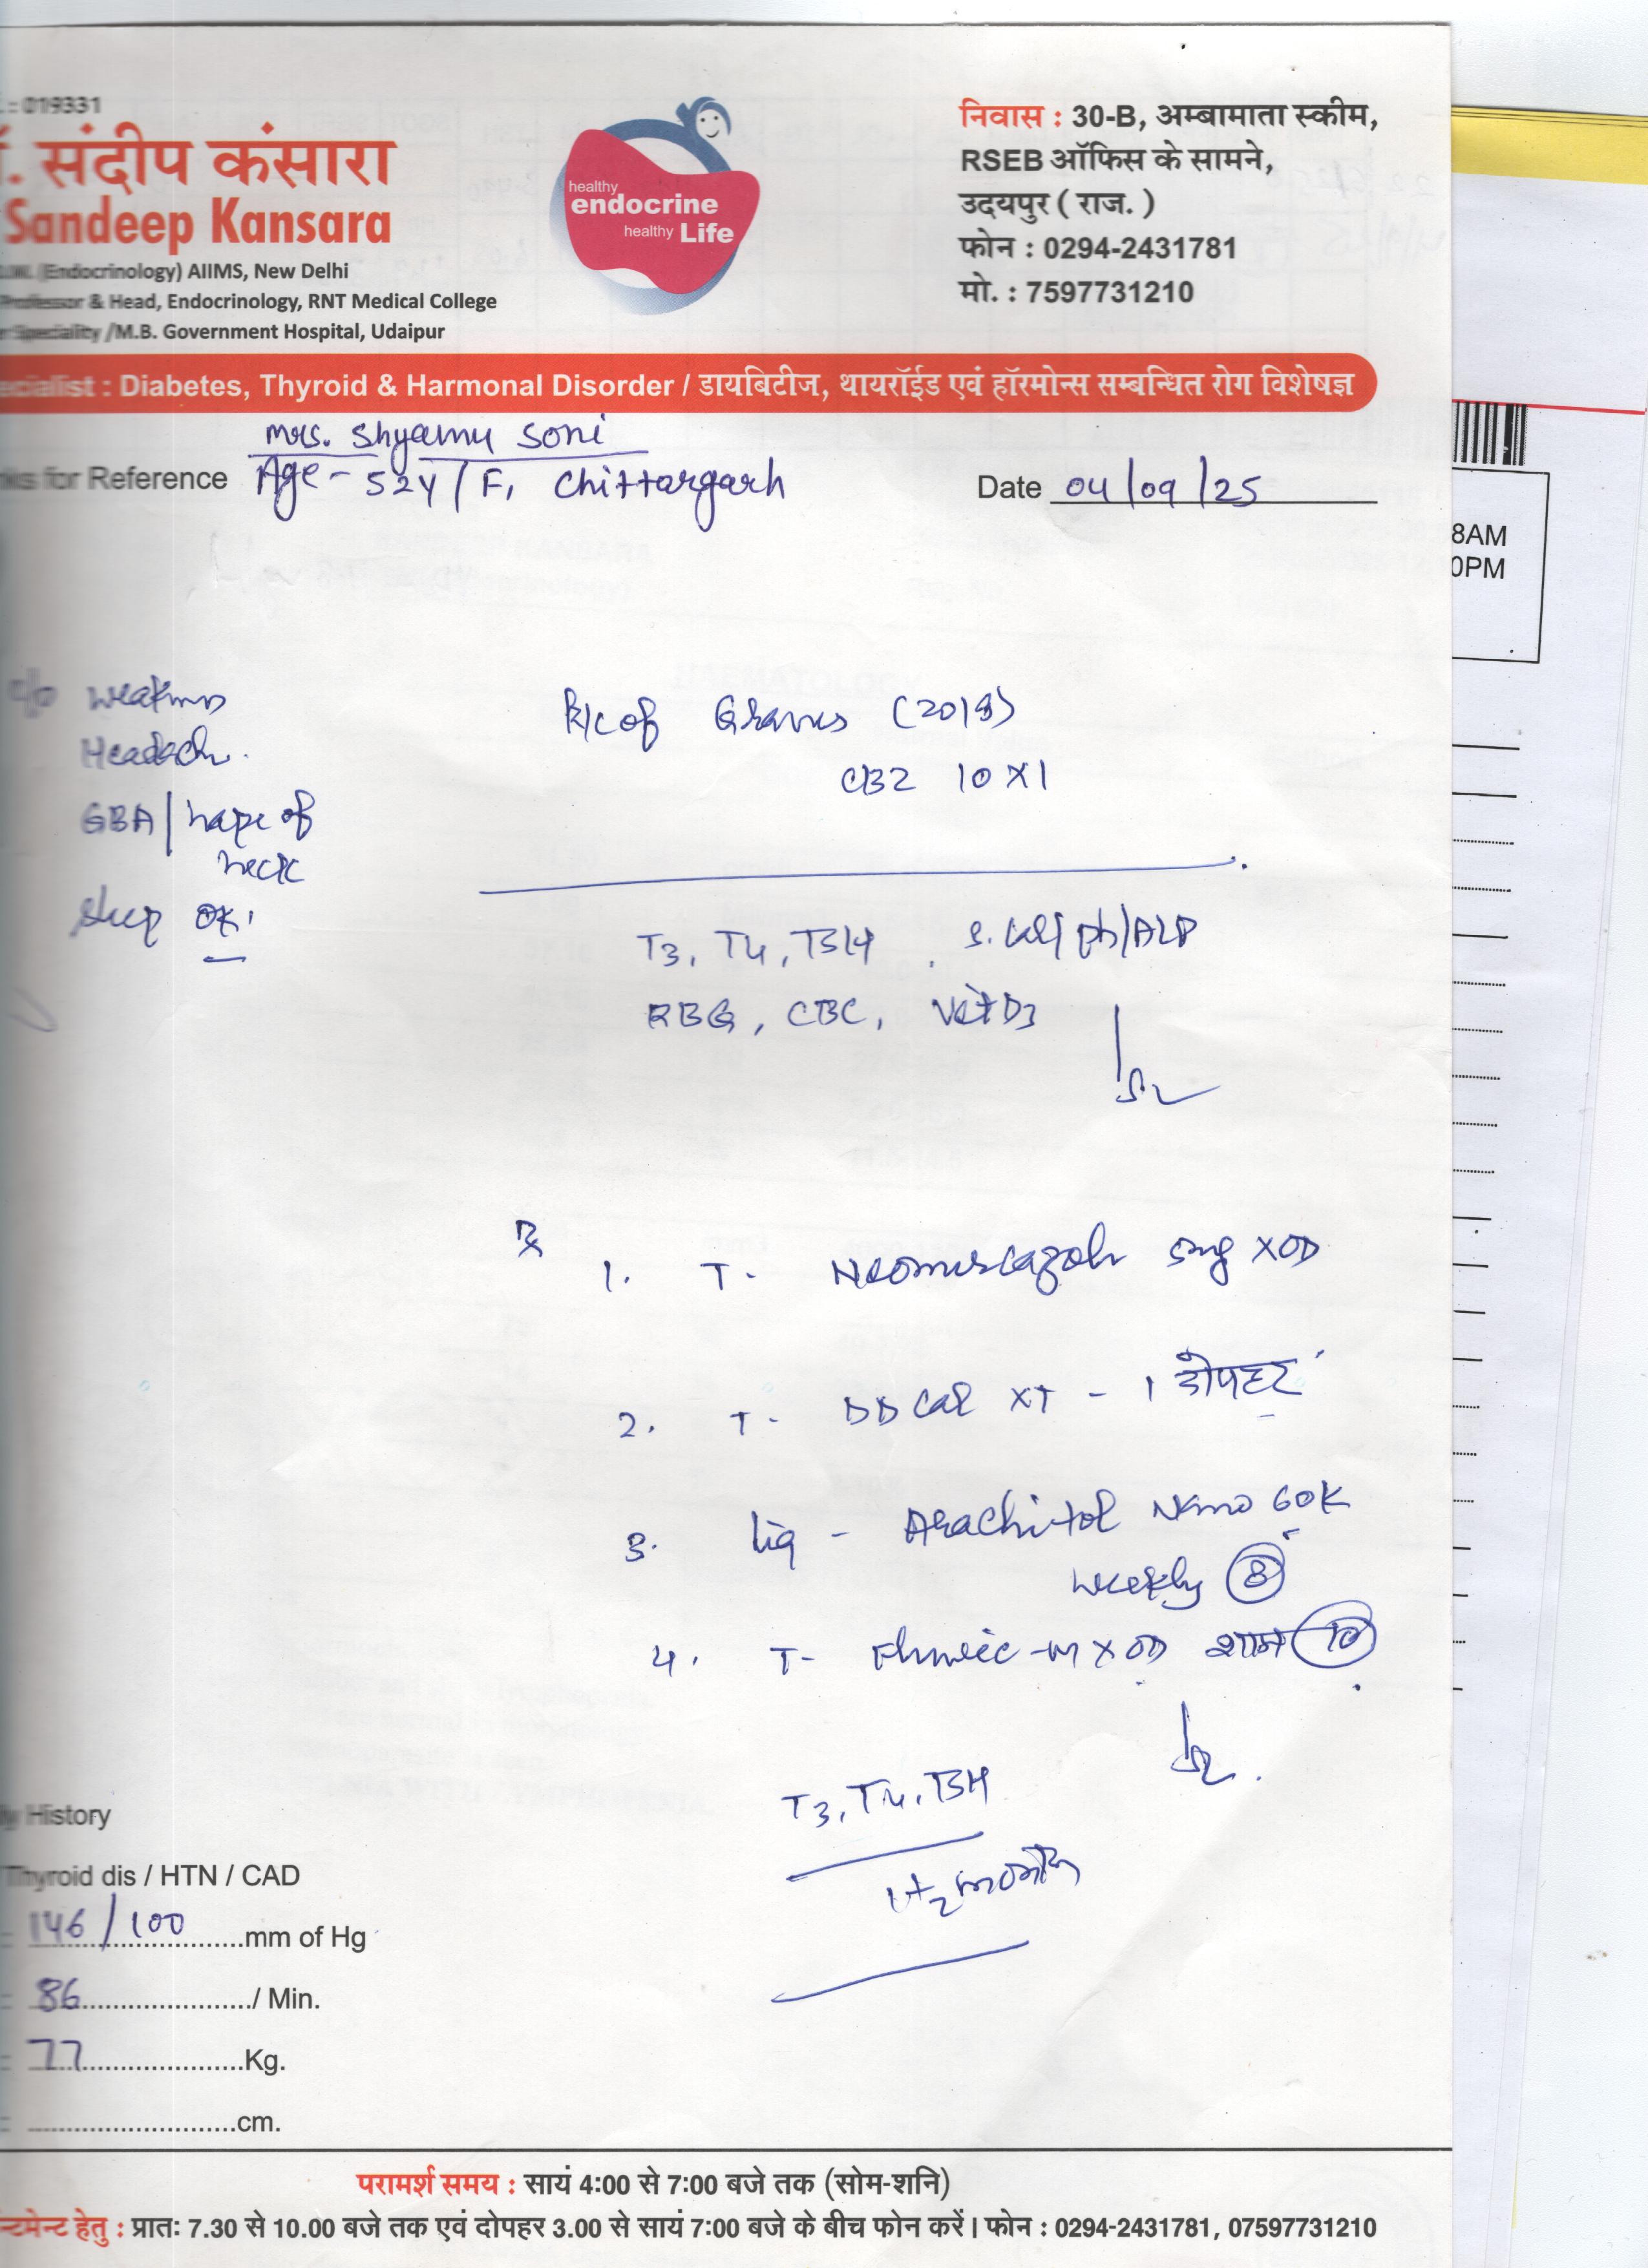 : 019331
. संदीप कंसारा
Sandeep Kansara
(Endocrinology) AIIMS, New Delhi
Professor & Head, Endocrinology, RNT Medical College
Speciality /M.B. Government Hospital, Udaipur
healthy
endocrine
healthy Life
निवास : 30-B, अम्बामाता स्कीम,
RSEB ऑफिस के सामने,
उदयपुर ( राज. )
फोन : 0294-2431781
मो. : 7597731210
ecialist : Diabetes, Thyroid & Harmonal Disorder / डायबिटीज, थायरॉईड एवं हॉरमोन्स सम्बन्धित रोग विशेषज्ञ
Mrs. Shyamu Soni
ks for Reference Age - 52Y / F, Chittargarh
Date 04/09/25
8AM
0PM
c/o weakness
Headach.
GBA / nape of
neck
sleep OK
K/c of Graves
CBZ 10 X 1
T3, T4, TSH, S. Cal/ph/ALP
RBG, CBC, Vit D3
Rx
1. T. Neomercazole 5mg X OD
2. T. DD Cal XT - 1 दोपहर
3. liq - Arachitol Nano 60K
weekly 8
4. T- -M X OD शाम 10
T3, T4, TSH
month
History
Thyroid dis / HTN / CAD
146/100 mm of Hg
86 / Min.
77 Kg.
cm.
परामर्श समय : सायं 4:00 से 7:00 बजे तक (सोम-शनि)
न्टमेन्ट हेतु : प्रातः 7.30 से 10.00 बजे तक एवं दोपहर 3.00 से सायं 7:00 बजे के बीच फोन करें। फोन : 0294-2431781, 07597731210